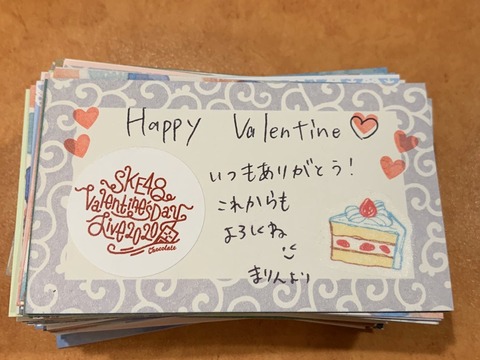 Happy Valentine♡
SKE48
Valentine's Day
Live 2020
Chocolate
いつもありがとう!
これからも
よろしくね
まりんより